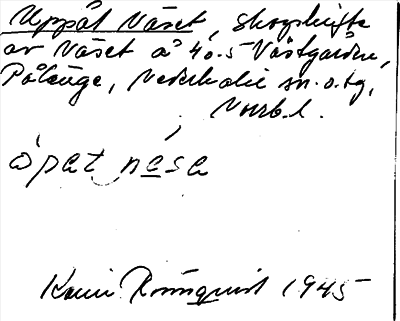 Uppåt Näset, skogskifte
av Näset å 40.5 Västgården,
Pålänge, Nederkalix sn. o. tg,
Norrb. l.
òpat nǻsa
Karin Rönnqvist 1945